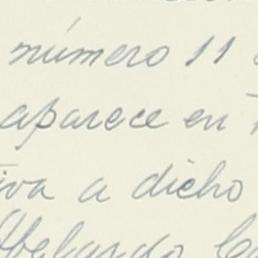 número 11
aparece en
iva a dicho
Abelardo